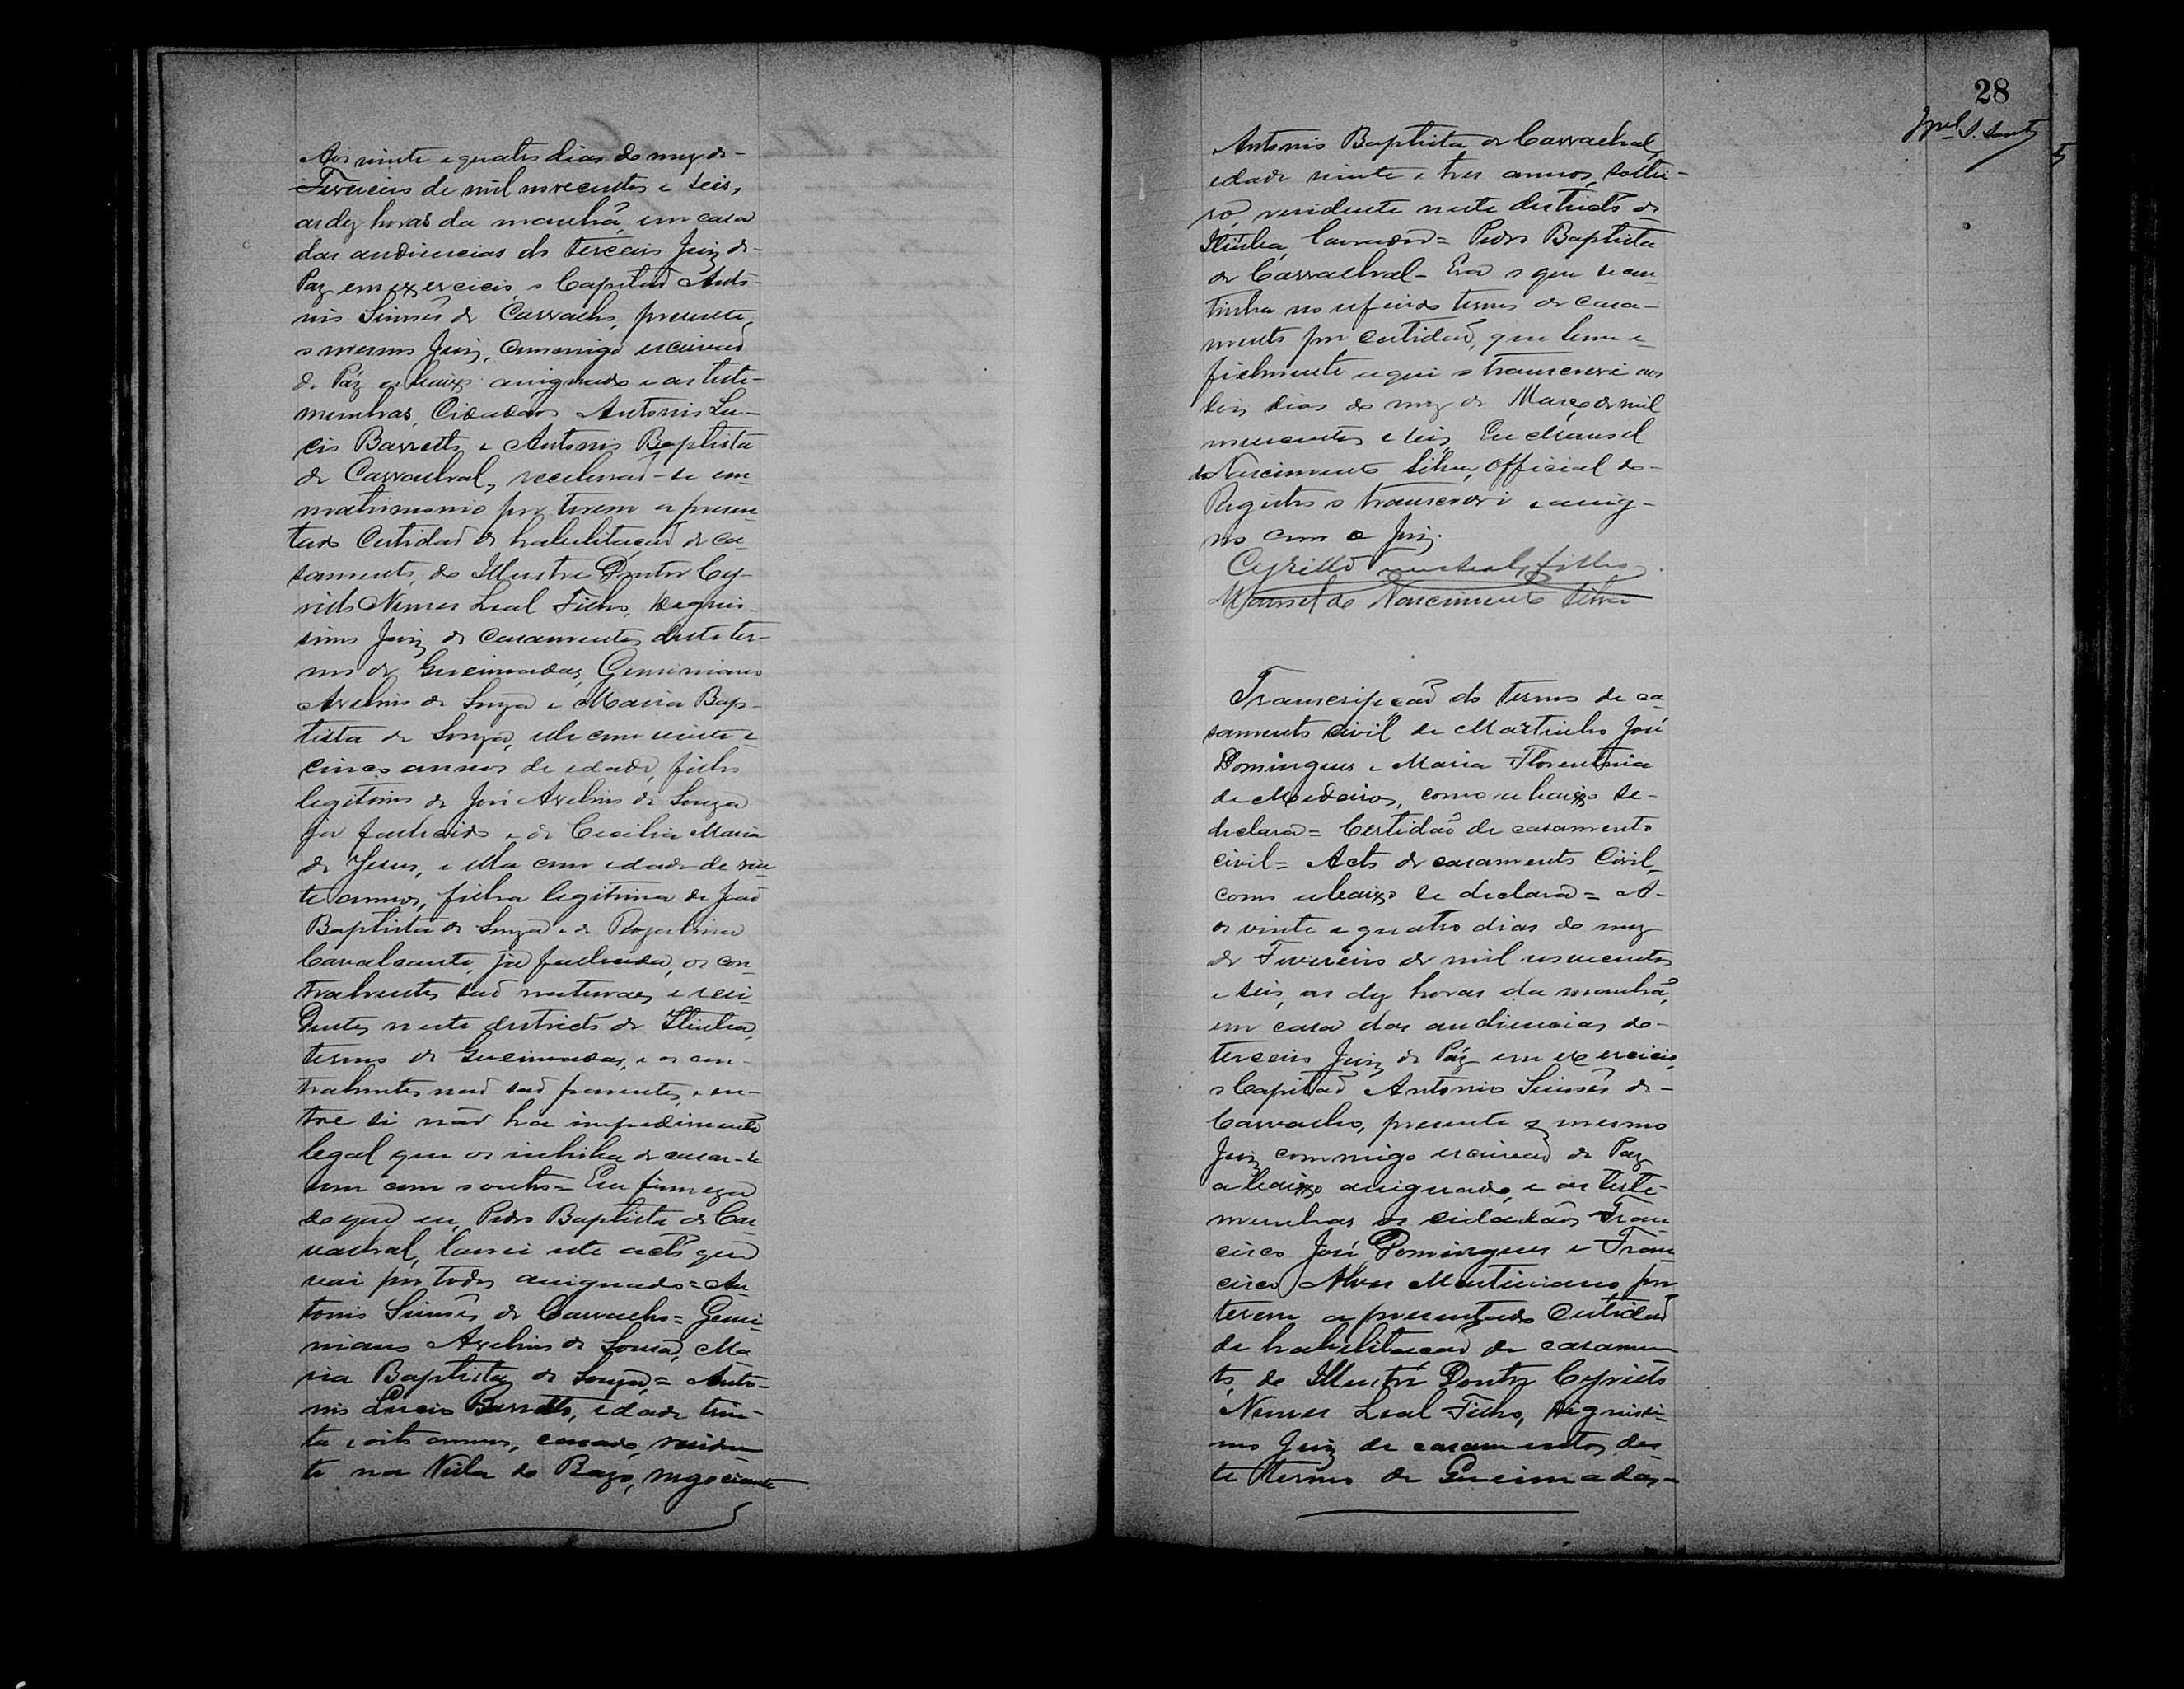 Aos vinte e quatro dias do mez de
Fevereiro de mil novecentos e seis,
as dez horas da manhã, em casa
das audiencias do terceiro Juiz de
Paz em exercicio, o Capitaõ Anto-
nio Simões de Carvalho, presente,
o mesmo Juiz, commigo escrivaõ
de Páz abaixo assignado e as teste-
munhas, Cidadãos Antonio Lu-
cio Barretto e Antonio Baptista
de Carvalhal, receberaõ-se em
matrimonio por terem apresen-
tado Certidaõ de habilitaçaõ de ca-
samento, do Illustre Doutor Cy-
rillo Nunes Leal Filho, Dignis-
simo Juiz de Casamentos deste ter-
mo de Queimadas, Geminiano
Avelino de Souza e Maria Bap-
tista de Souza, elle com vinte e
cinco annos de edade, filho
legitimo de José Avelino de Souza
ja fallecido e de Cecilia Maria
de Jesus, e ella com edade de vin
te annos, filha legitima de Joaõ
Baptista de Souza e de
Cavalcante, já fallecida, os con-
trahentes saõ naturaes e resi-
dentes neste districto de Itiuba,
termo de Queimadas, e os con-
trahentes naõ saõ parentes, e en-
tre si não ha impedimento
legal que os inhiba de casar-se
um com o outro = Em firmeza
do que eu, Pedro Baptista de Car
valhal, lavrei este acto que
vai por todos assignado = An
tonio Simões de Carvalho = Gemi-
niano Avelino de Souza, Ma
ria Baptista de Souza, = Anto-
nio Lucio Barretto, edade trin-
ta e oito annos, casado, residen
te na Villa do Razo, negociante
28
Antonio Baptista de Carvalhal,
edade vinte e tres annos, soltei-
ro, residente neste districto de
Itiuba, lavrador = Pedro Baptista
de Carvalhal - Era o que se con
tinha no referido termo de casa-
mento por certidaõ, que bem e
fielmente aqui o transcrevi aos
dias do mez de Março de mil
novecentos e seis, Eu Manoel
do Nascimento Silva, Official do
Registro o transcrevi e assig-
no com o Juiz.
Cyrillo Filho
Manoel do Nascimento Silva
Transcripçaõ do termo de ca
samento civil de Martinho José
Domingues e Maria Florentina
de Medeiros, como abaixo se
declara = Certidaõ de casamento
civil = Acto de casamento Civil,
como abaixo se declara = A-
os vinte e quatro dias do mez
de Fevereiro de mil novecentos
e seis, as dez horas da manhã,
em casa das audiencias do
terceiro Juiz de Páz em exercicio,
o Capitaõ Antonio Simões de
Carvalho, presente o mesmo
Juiz commigo escrivaõ de Paz
abaixo assignado, e as teste-
munhas os cidadãos Fran
cisco José Domingues e Fran
cisco Alves Martiniano, por
terem apresentado Certidaõ
de habilitaçaõ de casamen
to, do Illustre Doutor Cyrillo
Nunes Leal Filho, Dignissi-
mo Juiz de casamentos des
te termo de Queimadas